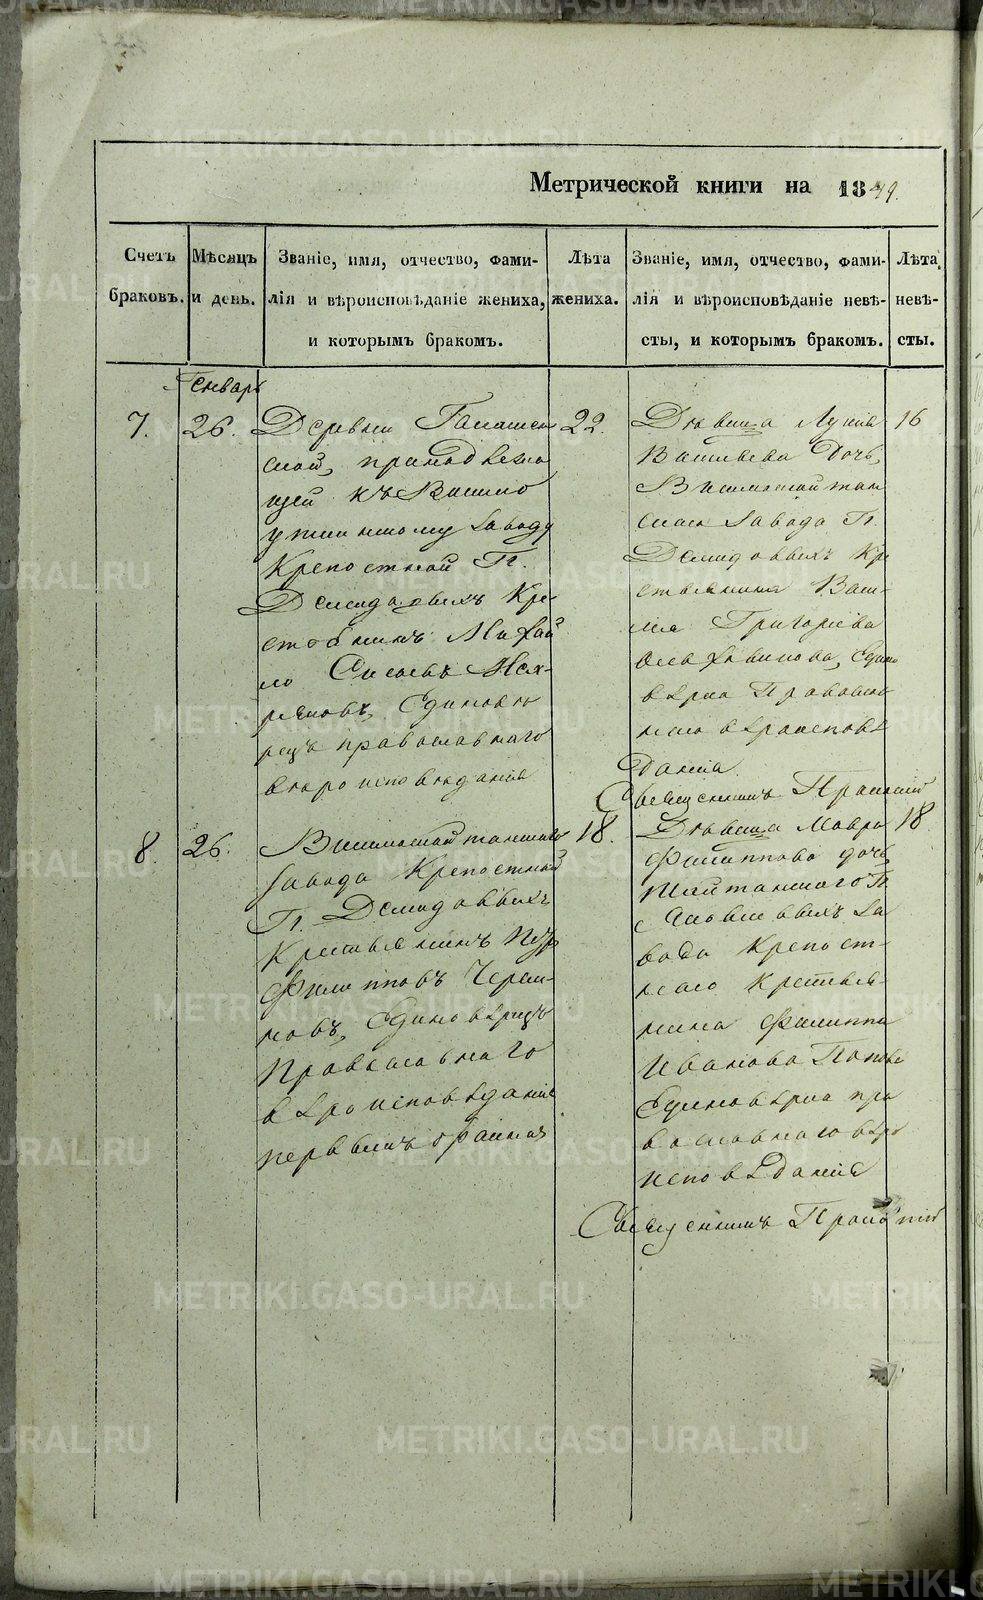 Метрической книги на 1849.
Счетъ браковъ.
Мѣсяцъ и день.
Званіе, имя, отчество, фами-
лія и вѣроисповѣданіе жениха,
и которымъ бракомъ.
Лѣта
жениха.
Званіе, имя, отчество, фами-
лія и вѣроисповѣданіе невѣ-
сты, и которымъ бракомъ.
Лѣта
невѣ-
сты.
Январь
7.
26.
Деревни
скои, принадлежа
щей къ Висимо
уткинскому заводу
Крепостной Гг.
Демидовыхъ Кре-
стьянинъ Михай
ло
Единовѣ
рецъ православнаго
вѣроисповѣданія
22.
Дѣвица Лукія
Васильева Дочь,
Висимошайтан
скаго завода Гг.
Демидовыхъ Кре
стьянина Васи-
лья Григорьева
Едино
вѣрка Православ
наго вѣроисповѣ
данія
16
Священникъ
8.
26.
Висимошайтанскаго
завода Крепостной
Гг. Демидовыхъ
Крестьянинъ
Филипповъ Черем-
новъ, Единовѣрецъ
Православнаго
вѣроисповѣданія
первымъ бракомъ
18.
Дѣвица Мавра
Филиппова дочь,
Шайтанскаго Гг.
Яковлевыхъ За
вода Крепост-
наго Крестья-
нина Филиппа
Иванова Попова
Единовѣрка пра
вославнаго вѣро
исповѣданія
18.
Священникъ
METRIKI.GASO-URAL.RU